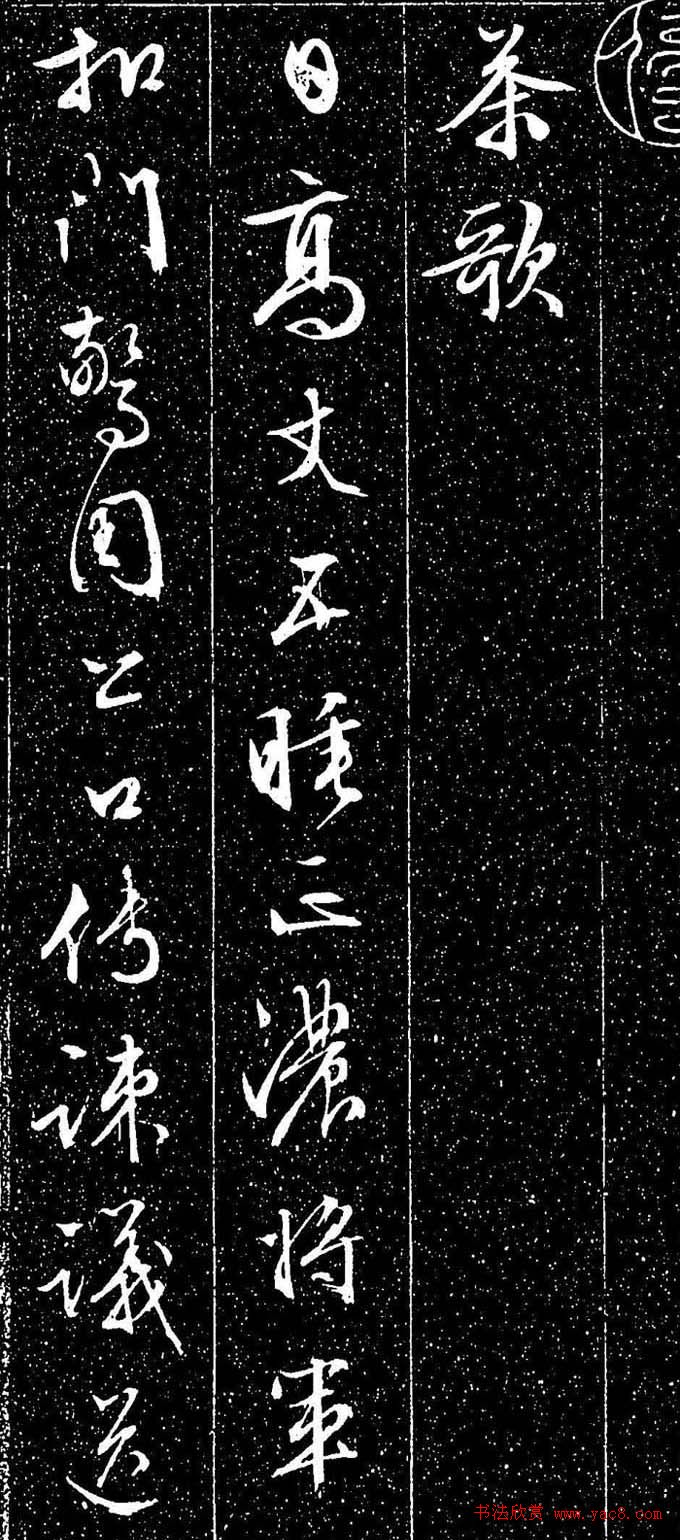 茶歌
日高丈五睡正濃將軍
扣門驚周公口傳諫議送
书法欣赏 www.yac8.com